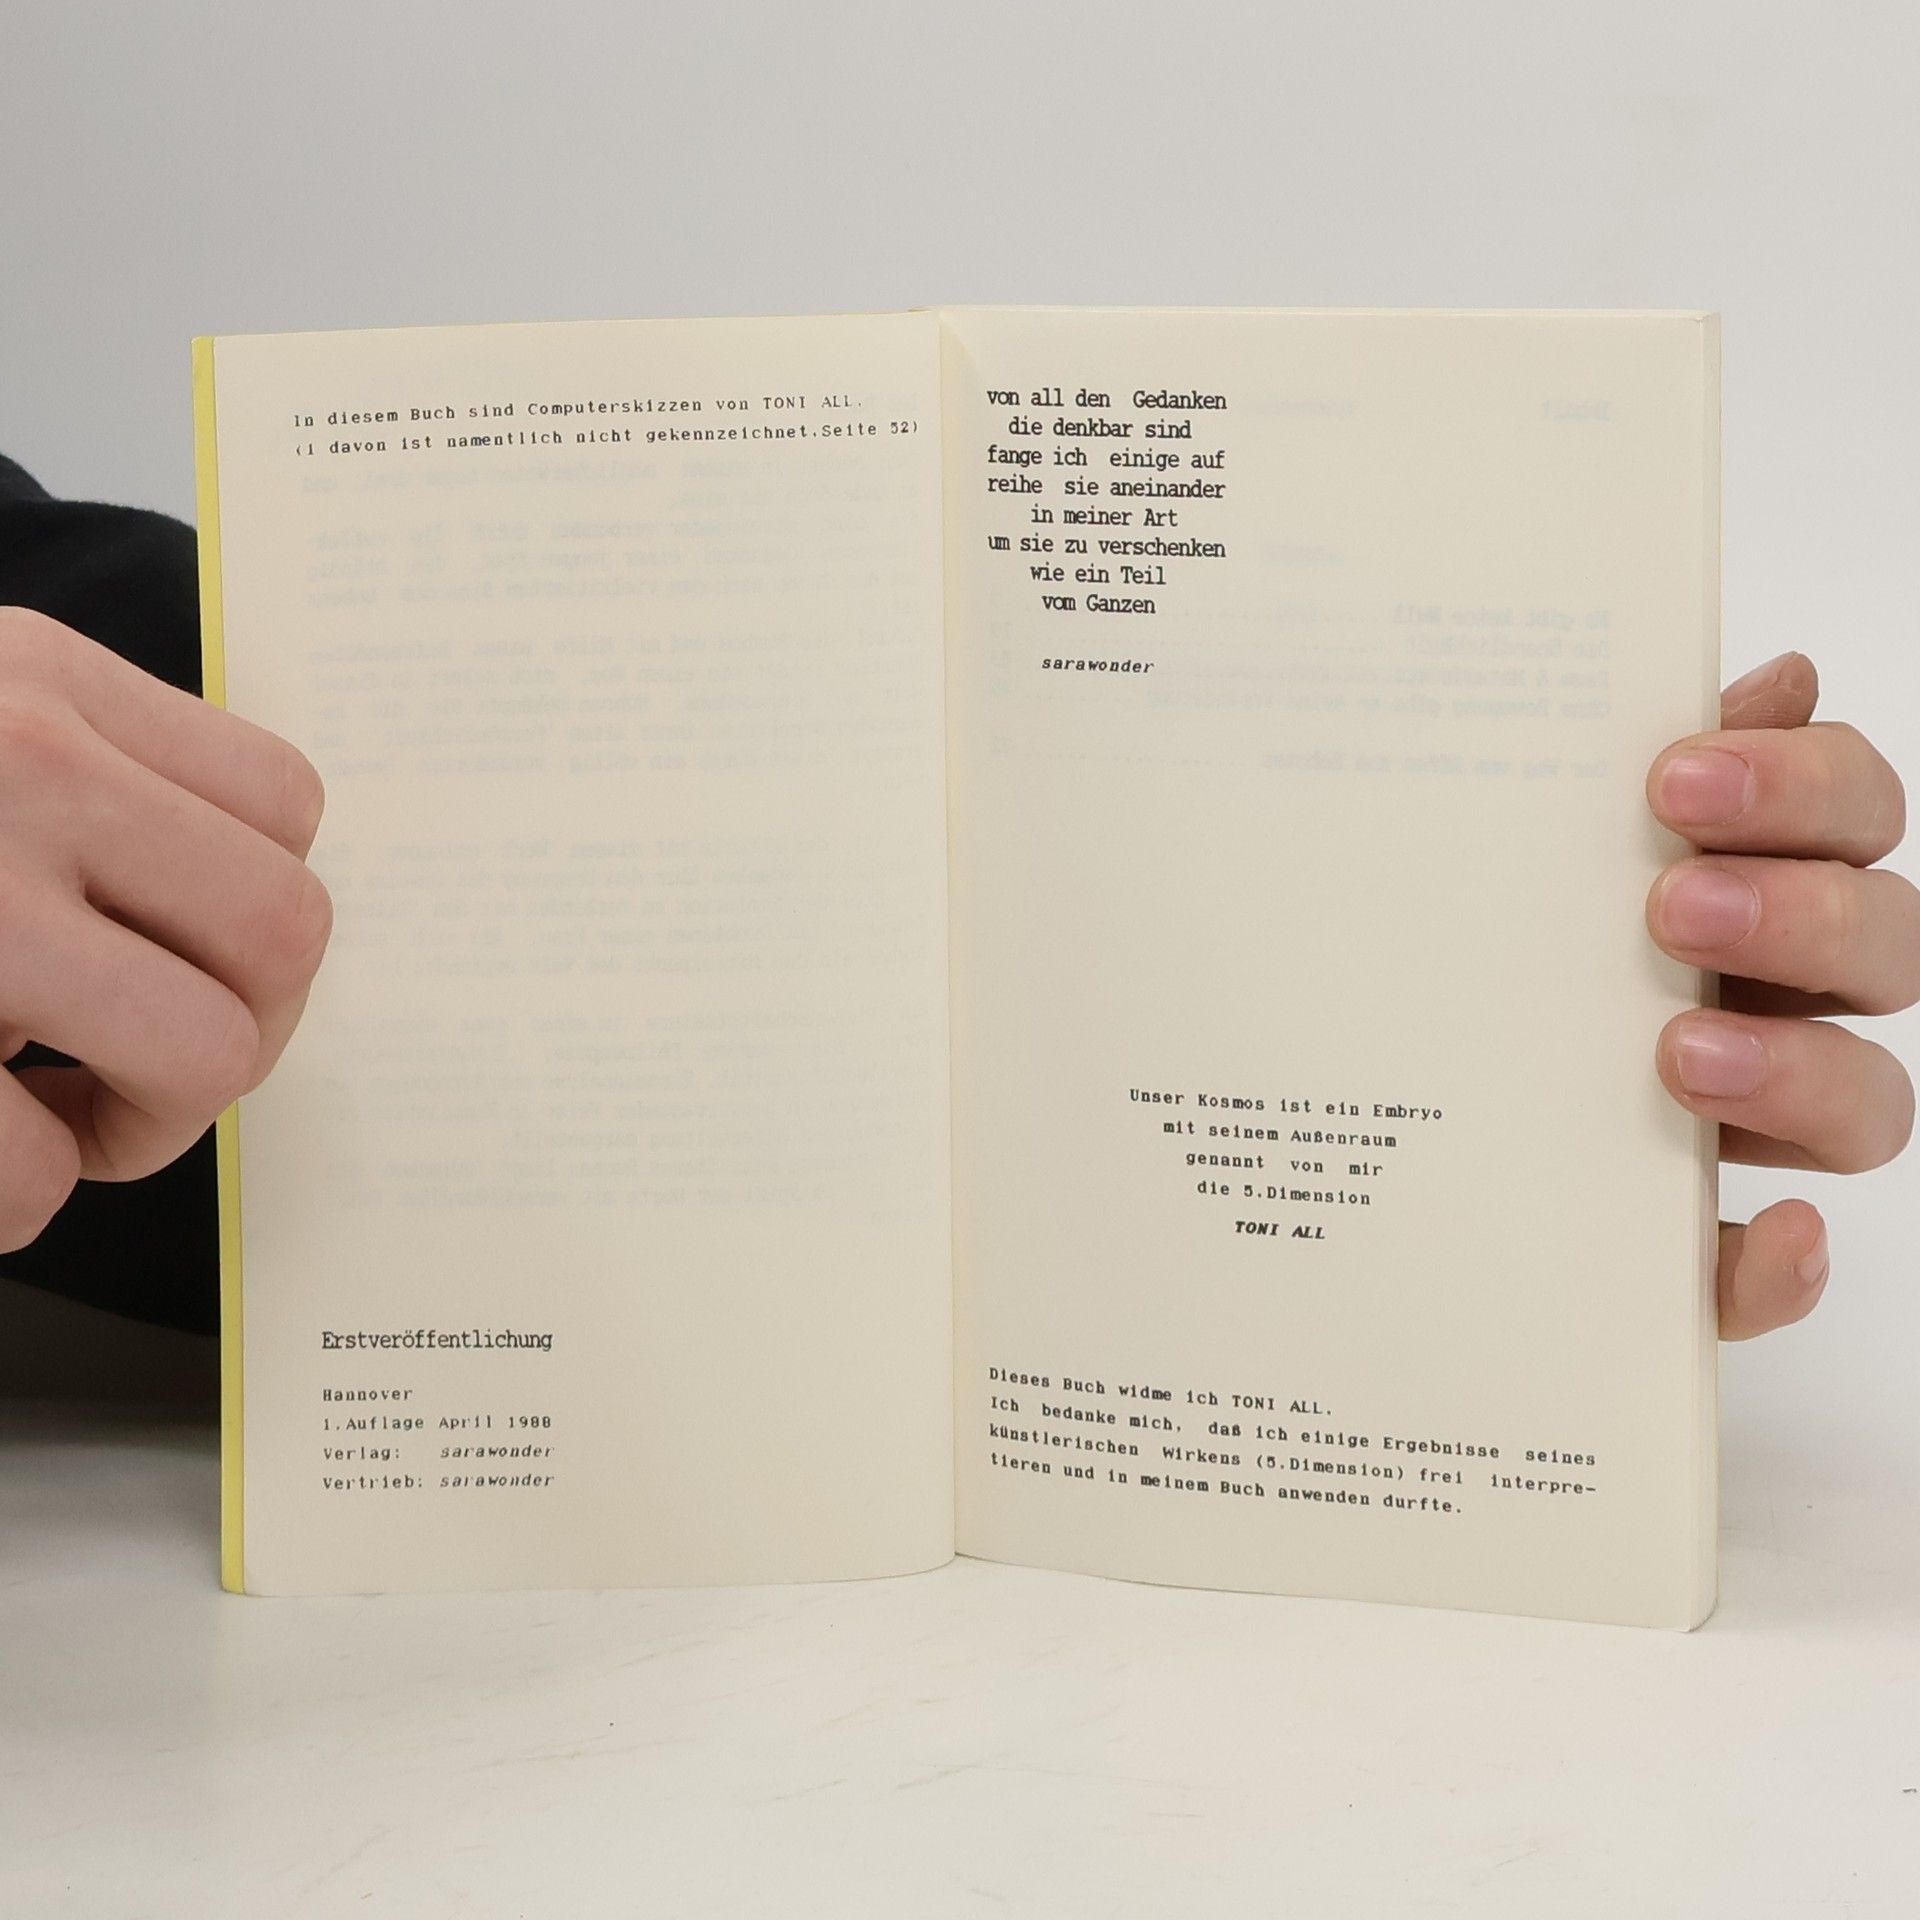 In diesem Buch sind Computerskizzen von TONI ALL.
(1 davon ist namentlich nicht gekennzeichnet.Seite 52)
Erstveröffentlichung
Hannover
1.Auflage April 1988
Verlag: sarawonder
Vertrieb: sarawonder
von all den Gedanken
die denkbar sind
fange ich einige auf
reihe sie aneinander
in meiner Art
um sie zu verschenken
wie ein Teil
vom Ganzen
sarawonder
Unser Kosmos ist ein Embryo
mit seinem Außenraum
genannt von mir
die 5.Dimension
TONI ALL
Dieses Buch widme ich TONI ALL.
Ich bedanke mich, daß ich einige Ergebnisse seines
künstlerischen Wirkens (5.Dimension) frei interpre-
tieren und in meinem Buch anwenden durfte.